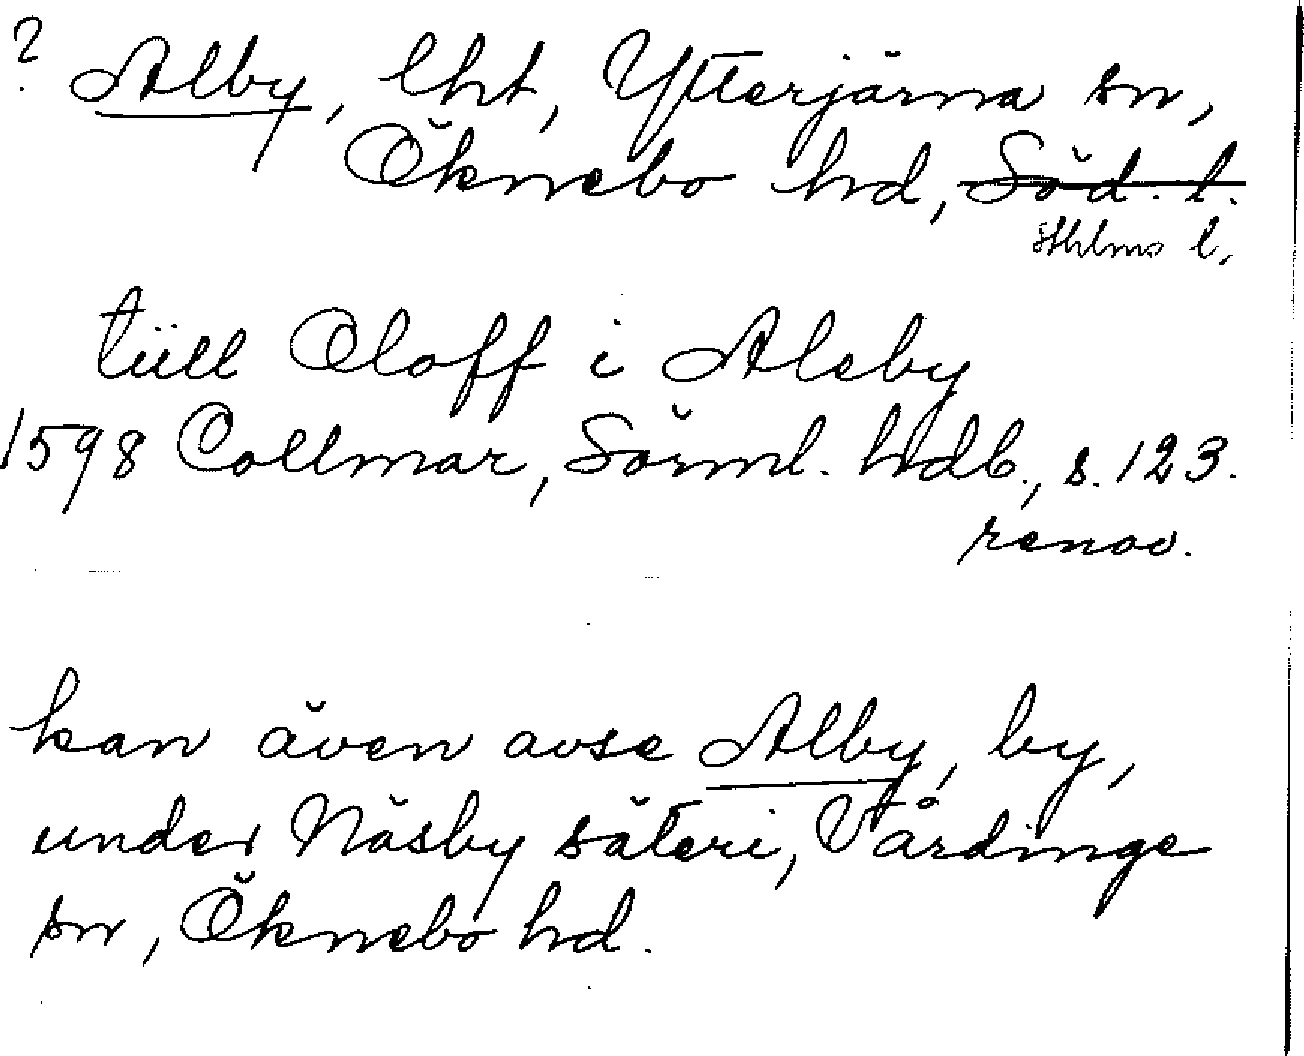 ? Alby, lht, Ytterjärna sn,
Öknebo hd, Söd. l.
Sthlms l.
tüll Oloff i Aleby
1598 Collmar, Sörml. hdb., s. 123.
renov.
kan även avse Alby, by,
under Näsby säteri, Vårdinge
sn, Öknebo hd.